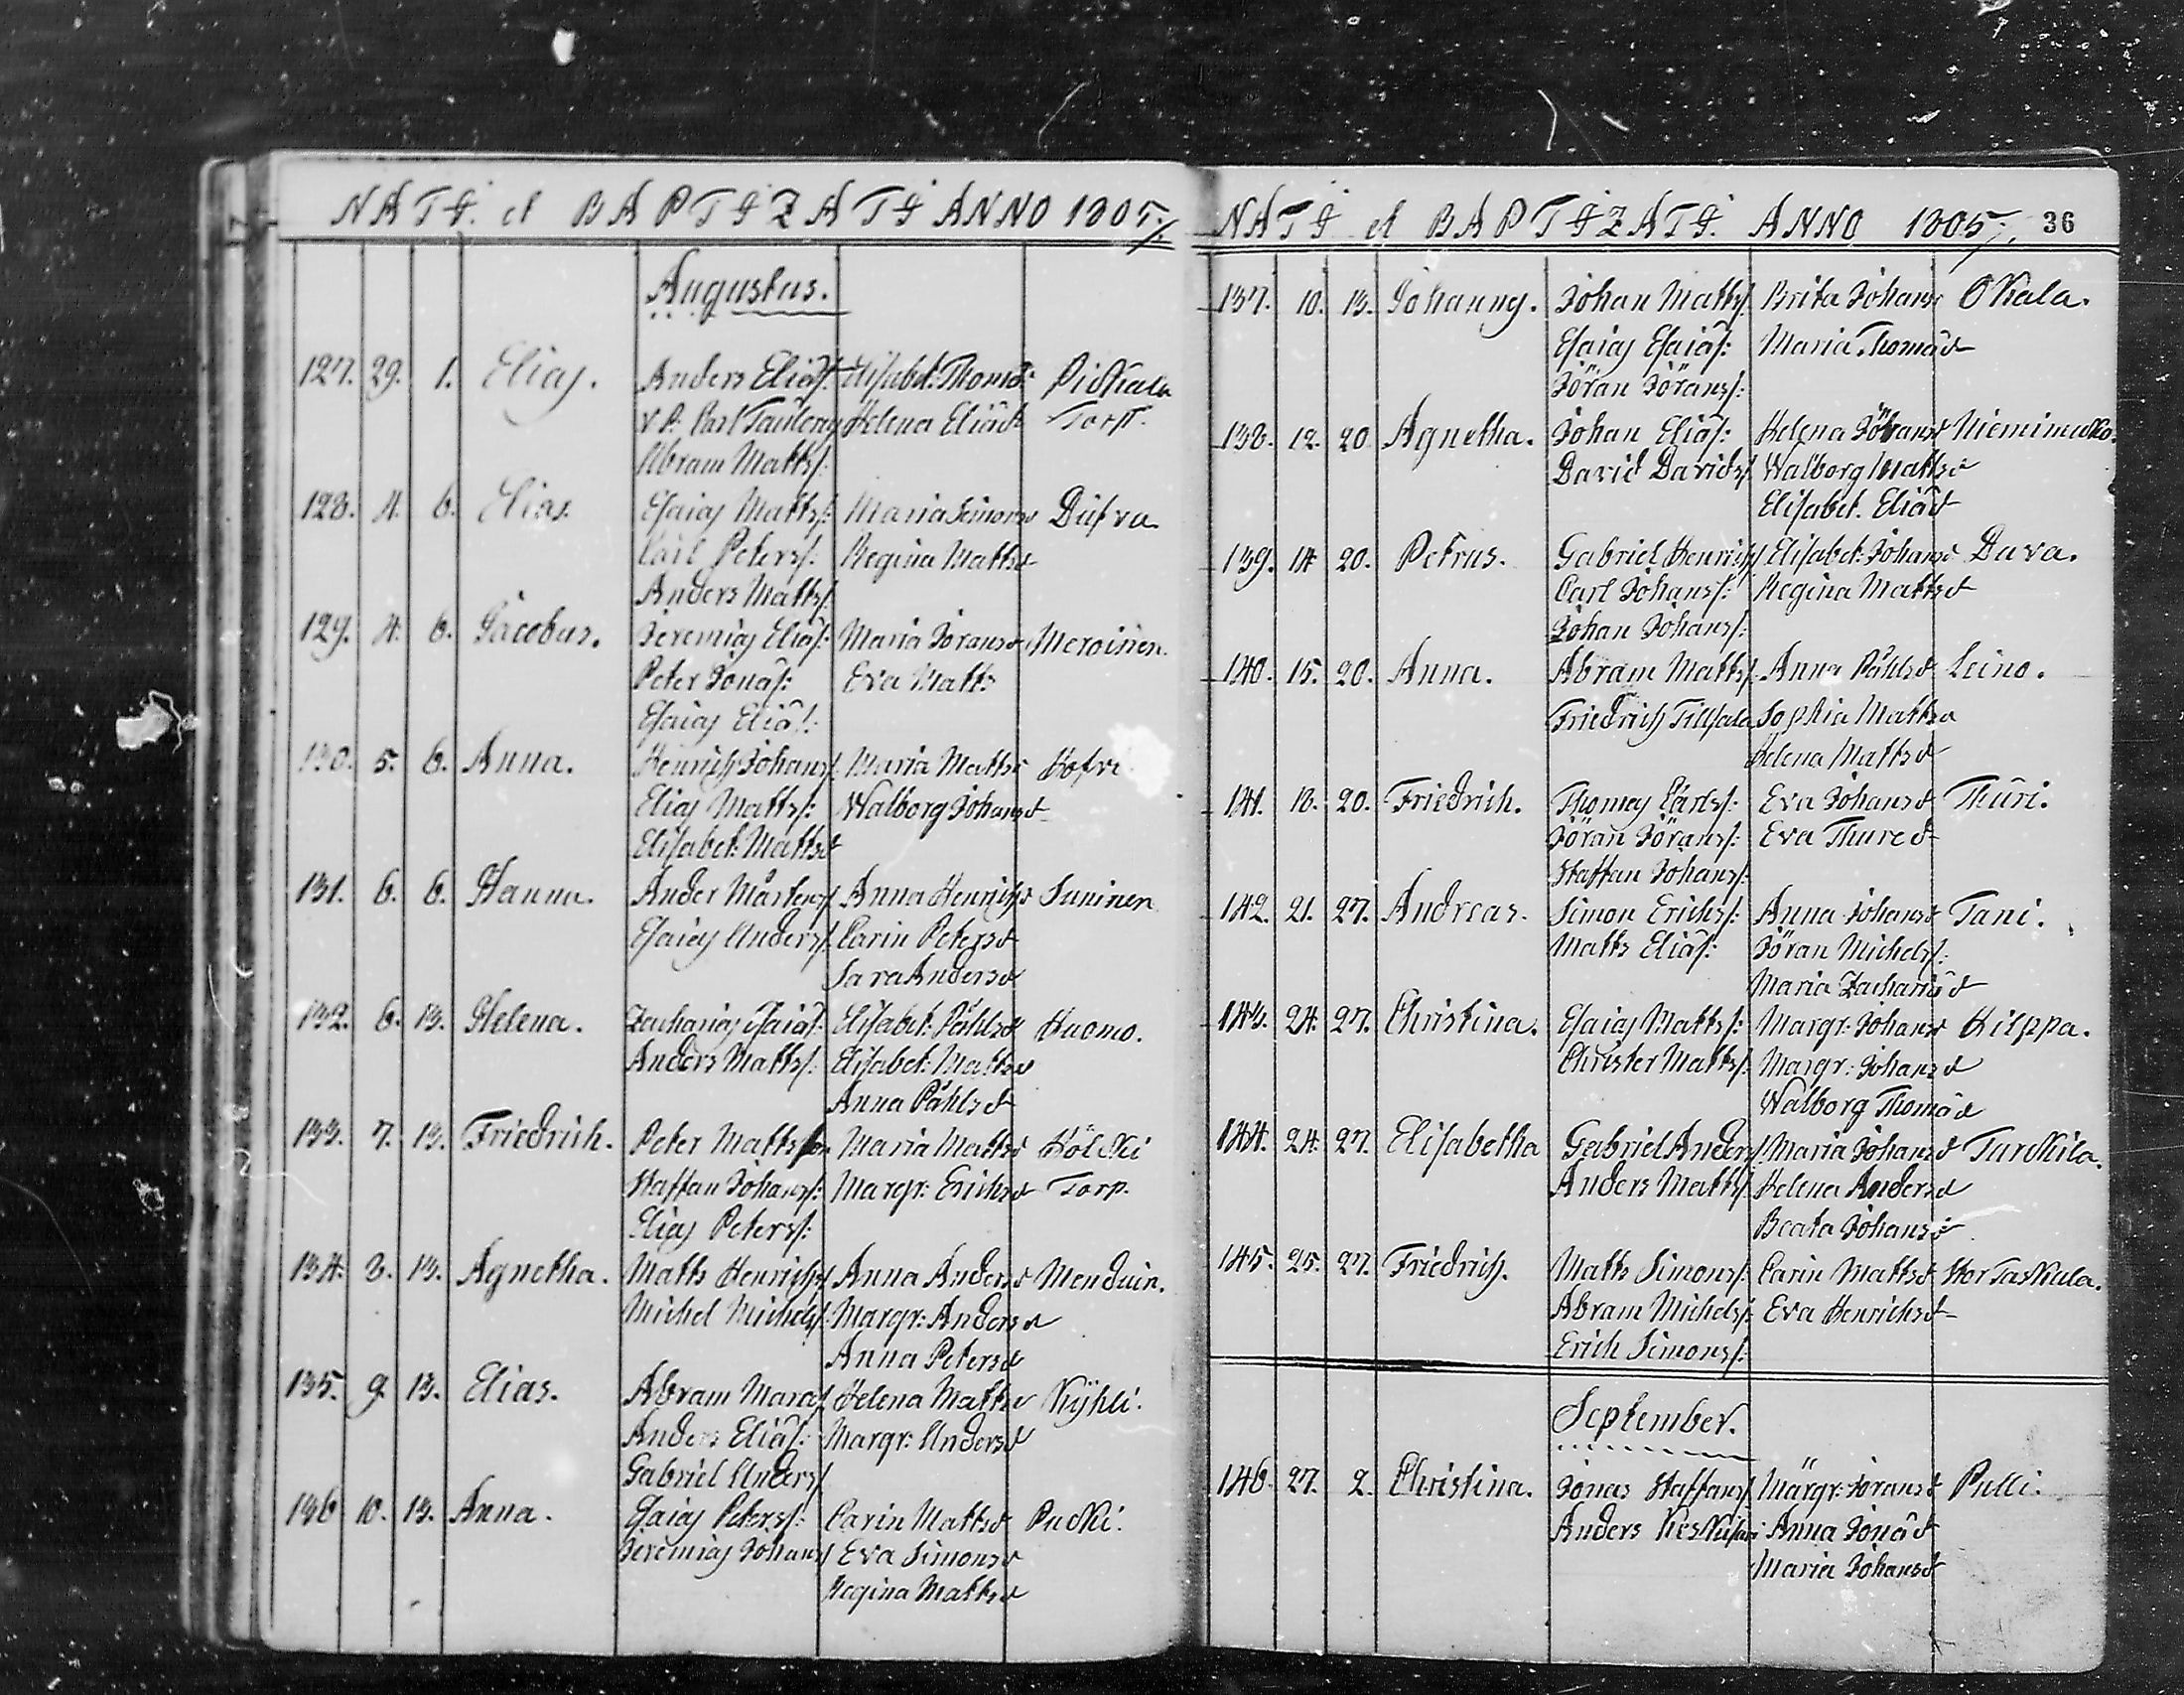 NATI. et BAPTIZATI ANNO 1805./.
Augustus.
127. 29. 1. Elias. Anders Eliæs: Elisabet: Thomæd: Pickala
V P: Carl Helena Eliæd Torp.
Abram Mattss:
128. 4. 6. Elias. Esaias Mattss: Maria Simonsd
Carl Peterss: Regina Mattsd
Anders Mattss:
129. 4. 6. Jacobus. Jeremias Eliæs: Maria Joransd Meroinen.
Peter Jonæs: Eva Matts
Esaias Eliæs:
130. 5. 6. Anna. Henrich Johanss: Maria Mattsd
Elias Mattss: Walborg Johansd
Elisabet: Mattsd
131. 6. 6. Hanna. Ander Mårtenss: Anna Henrichsd Suninen
Esaias Anderss: Carin Petersd
Sara Andersd
132. 6. 13. Helena. Zacharias Esaiæs: Elisabet: Påhlsd Huomo.
Anders Mattss: Elisabet: Mattsd
Anna Påhlsd
133. 7. 13. Friedrich. Peter Mattsson Maria Mattsd Hölcki
Staffan Johanss: Margr: Erichsd Torp.
Elias Peterss:
134. 8. 13. Agnetha. Matts Henrichss: Anna Andersd Menduin.
Michel Michelss: Margr: Andersd
Anna Petersd
135. 9. 13. Elias. Abram Helena Mattsd Kÿhli.
Anders Eliæs: Margr: Andersd
Gabriel Anderss:
136 10. 13. Anna. Esaias Peterss: Carin Mattsd Packi.
Jeremias Johanss: Eva Simonsd
Regina Mattsd
NATI et BAPTIZATI. ANNO 1805./. 36
137. 10. 13. Johannes. Johan Mattss: Brita Johansd Okala.
Esaias Esaiæs: Maria Thomæd
Jöran Jöranss:
138. 12. 20. Agnetha. Johan Eliæs: Helena Jöransd
David Davidss: Walborg Mattsd
Elisabet. Eliæd
139. 14 20. Petrus. Gabriel Henrichss: Elisabet: Johansd Dava.
Carl Johanss: Regina Mattsd
Johan Johanss:
140. 15. 20. Anna. Abram Mattss: Anna Påhlsd Leino.
Friedrich Sophia Mattsd
Helena Mattsd
141. 18. 20. Friedrich. Thomas Carlss: Eva Johansd Thuri.
Jöran Jöranss: Eva Thured
Staffan Johanss:
142. 21. 27. Andreas. Simon Erichss: Anna Johansd Tani.
Matts Eliæs: Jöran Michelss:
Maria Zachariæd
143. 24. 27. Christina. Esaias Mattss: Margr: Johansd Kilppa.
Christer Mattss: Margr: Johansd
Walborg Thomæd
144. 24. 27. Elisabetha Gabriel Anderss: Maria Johansd Turckila.
Anders Mattss: Helena Andersd
Beata Johansd
145. 25. 27. Friedrich. Matts Simonss: Carin Mattsd Stor Taskula.
Abram Michelss: Eva Henrichsd
Erich Simonss:
September.
146. 27. 2. Christina. Jonas Staffanss: Margr: Joransd Pulli.
Anders Anna Jonæd
Maria Johansd